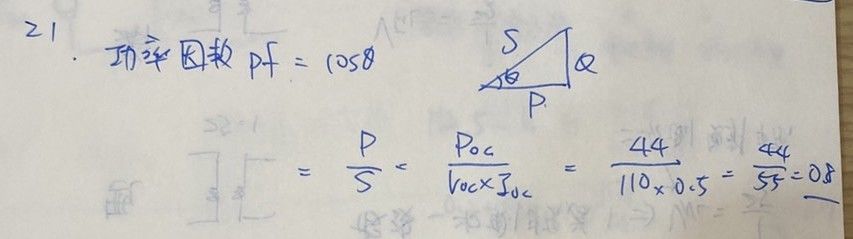 21.
功率因數 pf = cosθ
S
θ
Q
P
= P/S = Poc/(Voc×Ioc) = 44/(110×0.5) = 44/55 = 0.8